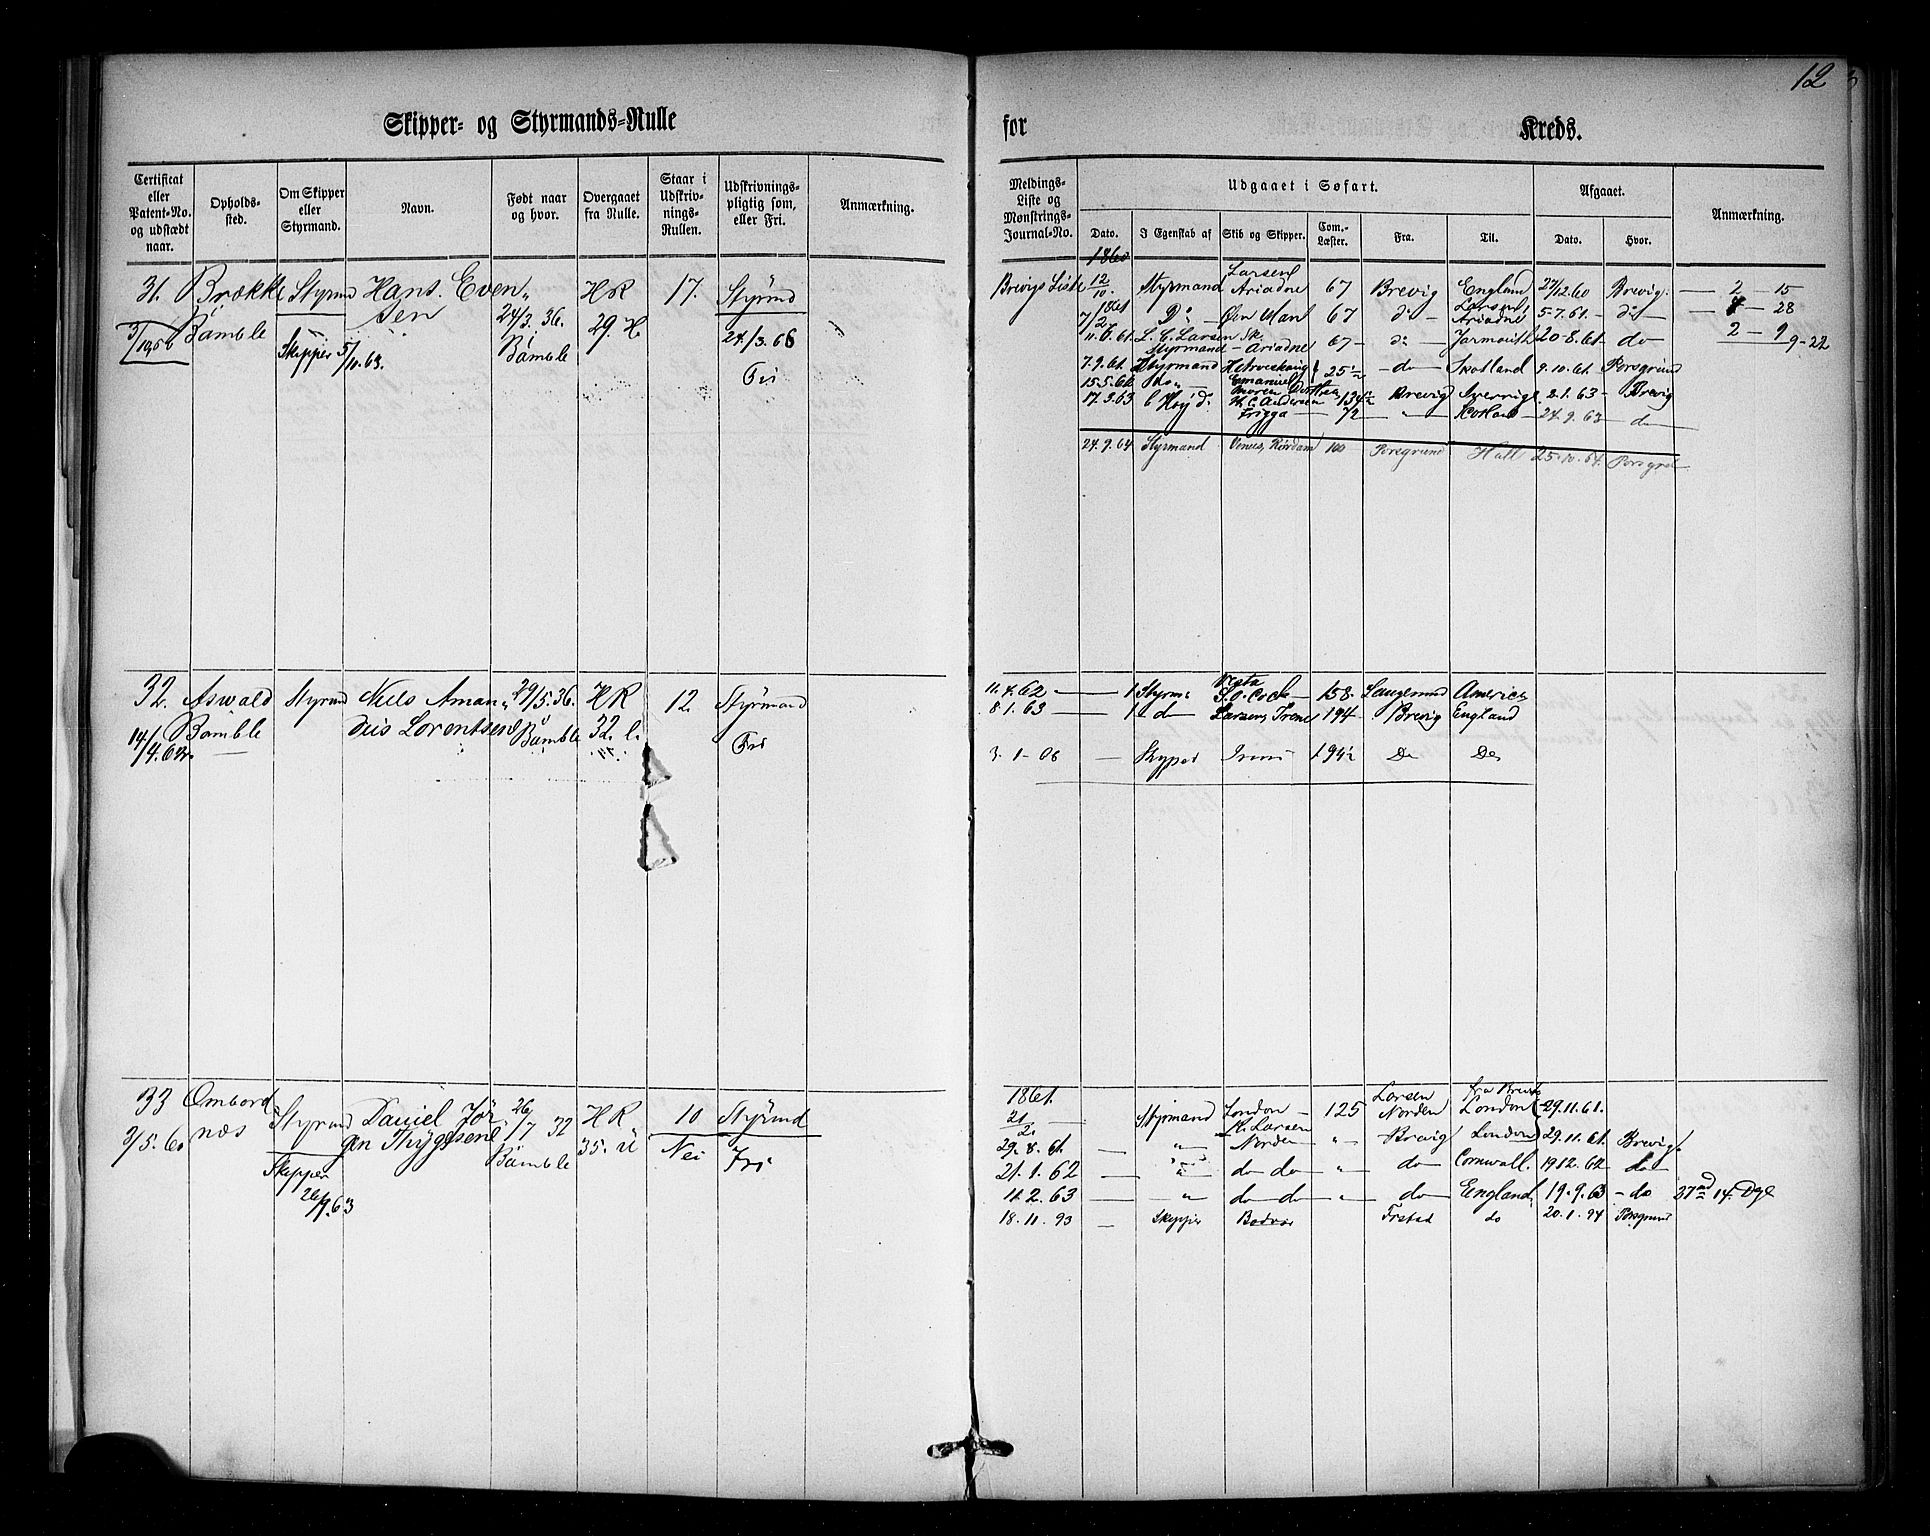 12
Skipper- og Styrmands-Rulle for Kreds.
Certificat eller Patent-No. og udstædt naar.
Opholds-sted.
Om Skipper eller Styrmand.
Navn.
Født naar og hvor.
Overgaaet fra Rulle.
Staar i Udskriv-nings-Rullen.
Udskrivnings-pligtig som, eller Fri.
Anmærkning.
Meldings-Liste og Mønstrings-Journal-No.
Udgaaet i Søfart.
Dato. I Egenskab af Skib og Skipper. Com.-Læster. Fra. Til.
Afgaaet.
Dato. Hvor.
Anmærkning.
31. Brække Styrmd Hans. Even„ 24/3. 36. HR 17. Styrmd
sen Bamble 29. H. 24/3. 66
Bamble Skipper 5/10. 63. Fri
1860
Brevigs Liste 12/10. Styrmand Larsen Ariadne 67 Brevig England 27/12.60 Brevig. — 2 — 15
1861 7/2. Do — 67 do — Larsen, Ariadne 5-7.61. — do — 28
11.6.61. L. C. Larsen Sk. Styrmand — Ariadne 67 — do — Jarmouth 20-8.61. — do 2 — 9 9-22
7.9.61. Styrmand 25 — do — Skotland 9.10.61. Porsgrund
15.5.61. do — Emanuel
17.3.63 H. C. Andersen 134 Brevig Sverrig 2.1.63 — Brevig
Frigga — 72 — „ 24.9.63 — do
24.9.64 Styrmand Venus, Rørdam 100 Porsgrund Hull 25.10.64. Porsgrd
32. Aswald Styrmd Niels Aman„ 29/5. 36. HR 12. Styrmand
Bamble dus Lorentsen Bamble 32. l. Fri
14/4. 62.
11.4.62 — 1 Styrm Vesta S. O. Cock — 158. Langesund America
8.1.63 — 1 do Larsen, Irene 194 — Brevig England
3.1-06 — 194½ Do Do
33 Ombord Styrmd Daniel Jør 26/7 32 HR 10 Styrmd
3/5. 60 næs gen Thygesen Bamble 35. ü Nei Fri
Skipper
26/9. 63
1861. 21/2. — Styrmand London — K. Larsen 125 Larsen Norden fra Brevig London 29.11.61.
29.8.61. — „ Norden „ Brevig London 29.11.61. Brevig
21.1.62 — „ do do „ do Cornwall. 19 12.62 do
11.2.63 — „ do do — „ — do England 19.9.63 — do 37 md 14. Dge
18.11.93 — Skipper Fr.stad do 20.1.94 Porsgrund